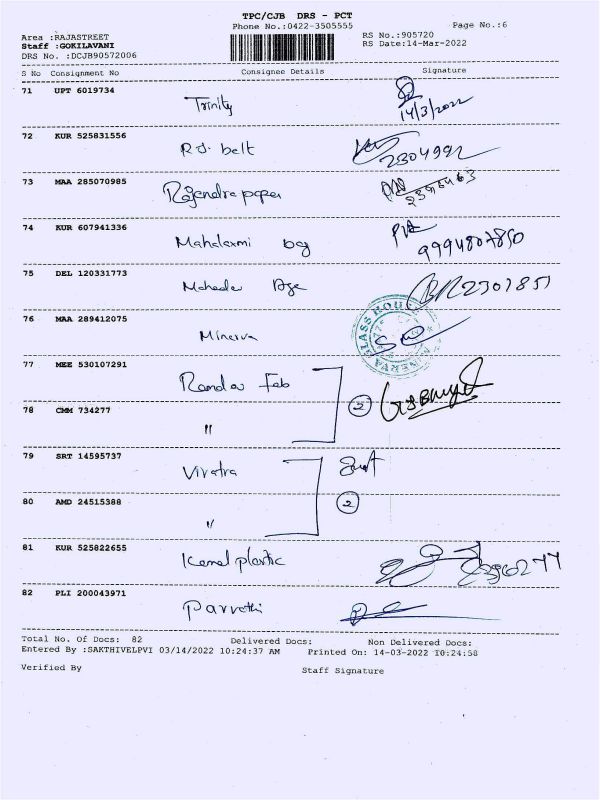 TPC/CJB DRS - PCT
Phone No.:0422-3505555 Page No.:6
Area :RAJASTREET RS No.:905720
Staff :GOKILAVANI RS Date:14-Mar-2022
DRS No. :DCJB90572006
S No Consignment No Consignee Details Signature
71 UPT 6019734
Trinity 14/3/2022
72 KUR 525831556
R.J. belt 2304992
73 MAA 285070985
Rajendra paper
74 KUR 607941336
Mahalaxmi bag
75 DEL 120331773
76 MAA 289412075
Minerva
MINERVA GLASS HOUSE
77 MEE 530107291
2
78 CMM 734277
"
79 SRT 14595737
80 AMD 24515388
2
"
81 KUR 525822655
Kamal plastic
82 PLI 200043971
Parvathi
Total No. Of Docs: 82 Delivered Docs: Non Delivered Docs:
Entered By :SAKTHIVELPVI 03/14/2022 10:24:37 AM Printed On: 14-03-2022 10:24:58
Verified By Staff Signature